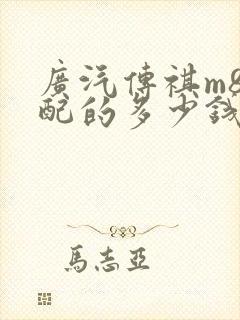 廣汽傳祺m8
配的多少錢
馬志亞